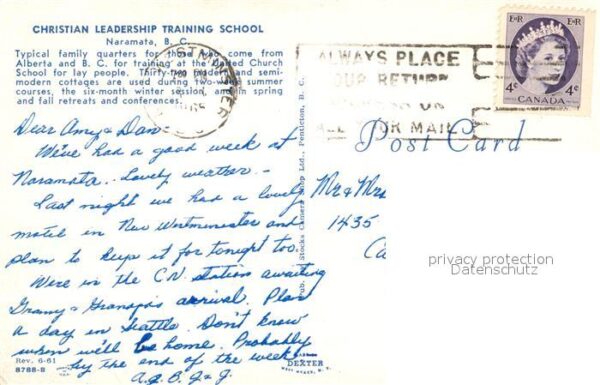 CHRISTIAN LEADERSHIP TRAINING SCHOOL
Naramata, B. C.
Typical family quarters for those who come from
Alberta and B. C. for training at the United Church
School for lay people. Thirty-two modern and semi-
modern cottages are used during two-week summer
courses, the six-month winter session, and in spring
and fall retreats and conferences.
WESTMINSTER
1965
ALWAYS PLACE
OUR RETURN
ON
ALL YOUR MAIL
E II R E II R
4¢ 4¢
CANADA
Post Card
Dear Amy & Dan
We've had a good week at
Naramata. Lovely weather. -
Last night we had a lovely
motel in New Westminster and
plan to keep it for tonight too.
Were in the C.N. station awaiting
Gramy & Grampa's arrival. Plan
a day in Seattle. Don't know
when we'll be home. Probably
by the end of the week
A.G.B. J & J.
Pub. Stocks Camera Shop Ltd., Penticton, B. C.
Mr & Mrs
1435
Ca
privacy protection
Datenschutz
Rev. 6-61
8788-B
DEXTER
WEST NYACK, N. Y.